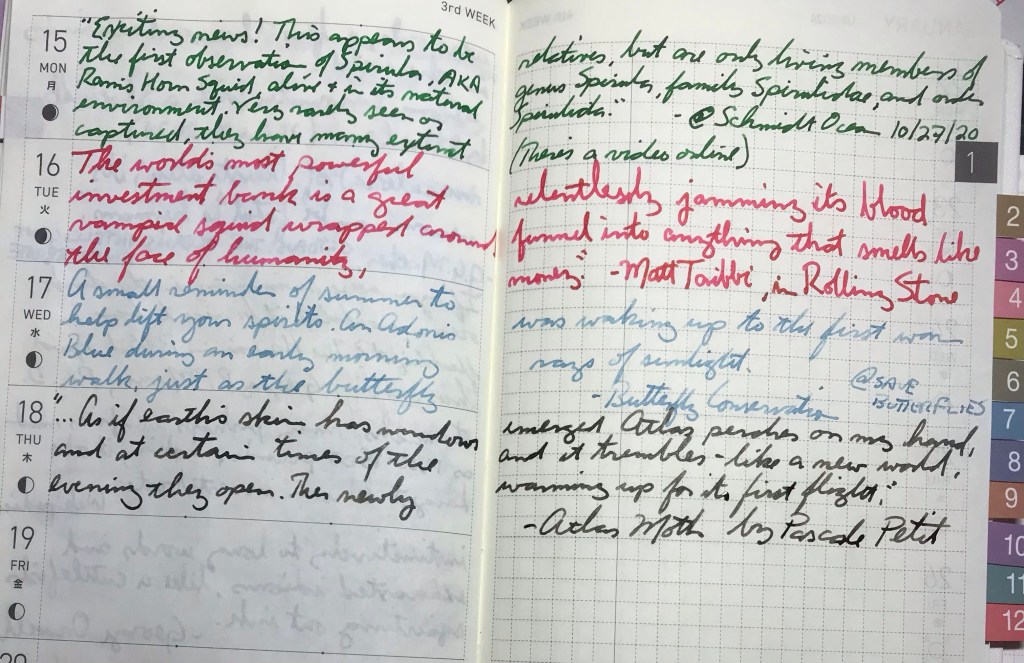 3rd WEEK
15
MON
月
"Exciting news! This appears to be
the first observation of Spirula, AKA
Rams Horn Squid, alive + in its natural
environment. Very rarely seen or
captured, they have many extinct
relatives, but are only living members of
genus Spirula, family Spirulidae, and order
Spirulida." - @SchmidtOcean 10/27/20
(There's a video online)
1
16
TUE
火
The world's most powerful
investment bank is a great
vampire squid wrapped around
the face of humanity,
relentlessly jamming its blood
funnel into anything that smells like
money." - Matt Taibbi, in Rolling Stone
17
WED
水
A small reminder of summer to
help lift your spirits. An Adonis
Blue during an early morning
walk, just as the butterfly
was waking up to the first warm
rays of sunlight.
- Butterfly Conservation
@SAVE
BUTTERFLIES
18
THU
木
"...As if earth's skin has windows
and at certain times of the
evening they open. The newly
emerged Atlas perches on my hand,
and it trembles - like a new world,
warming up for its first flight."
- Atlas Moth by Pascale Petit
19
FRI
金
20
2
3
4
5
6
7
8
9
10
11
12